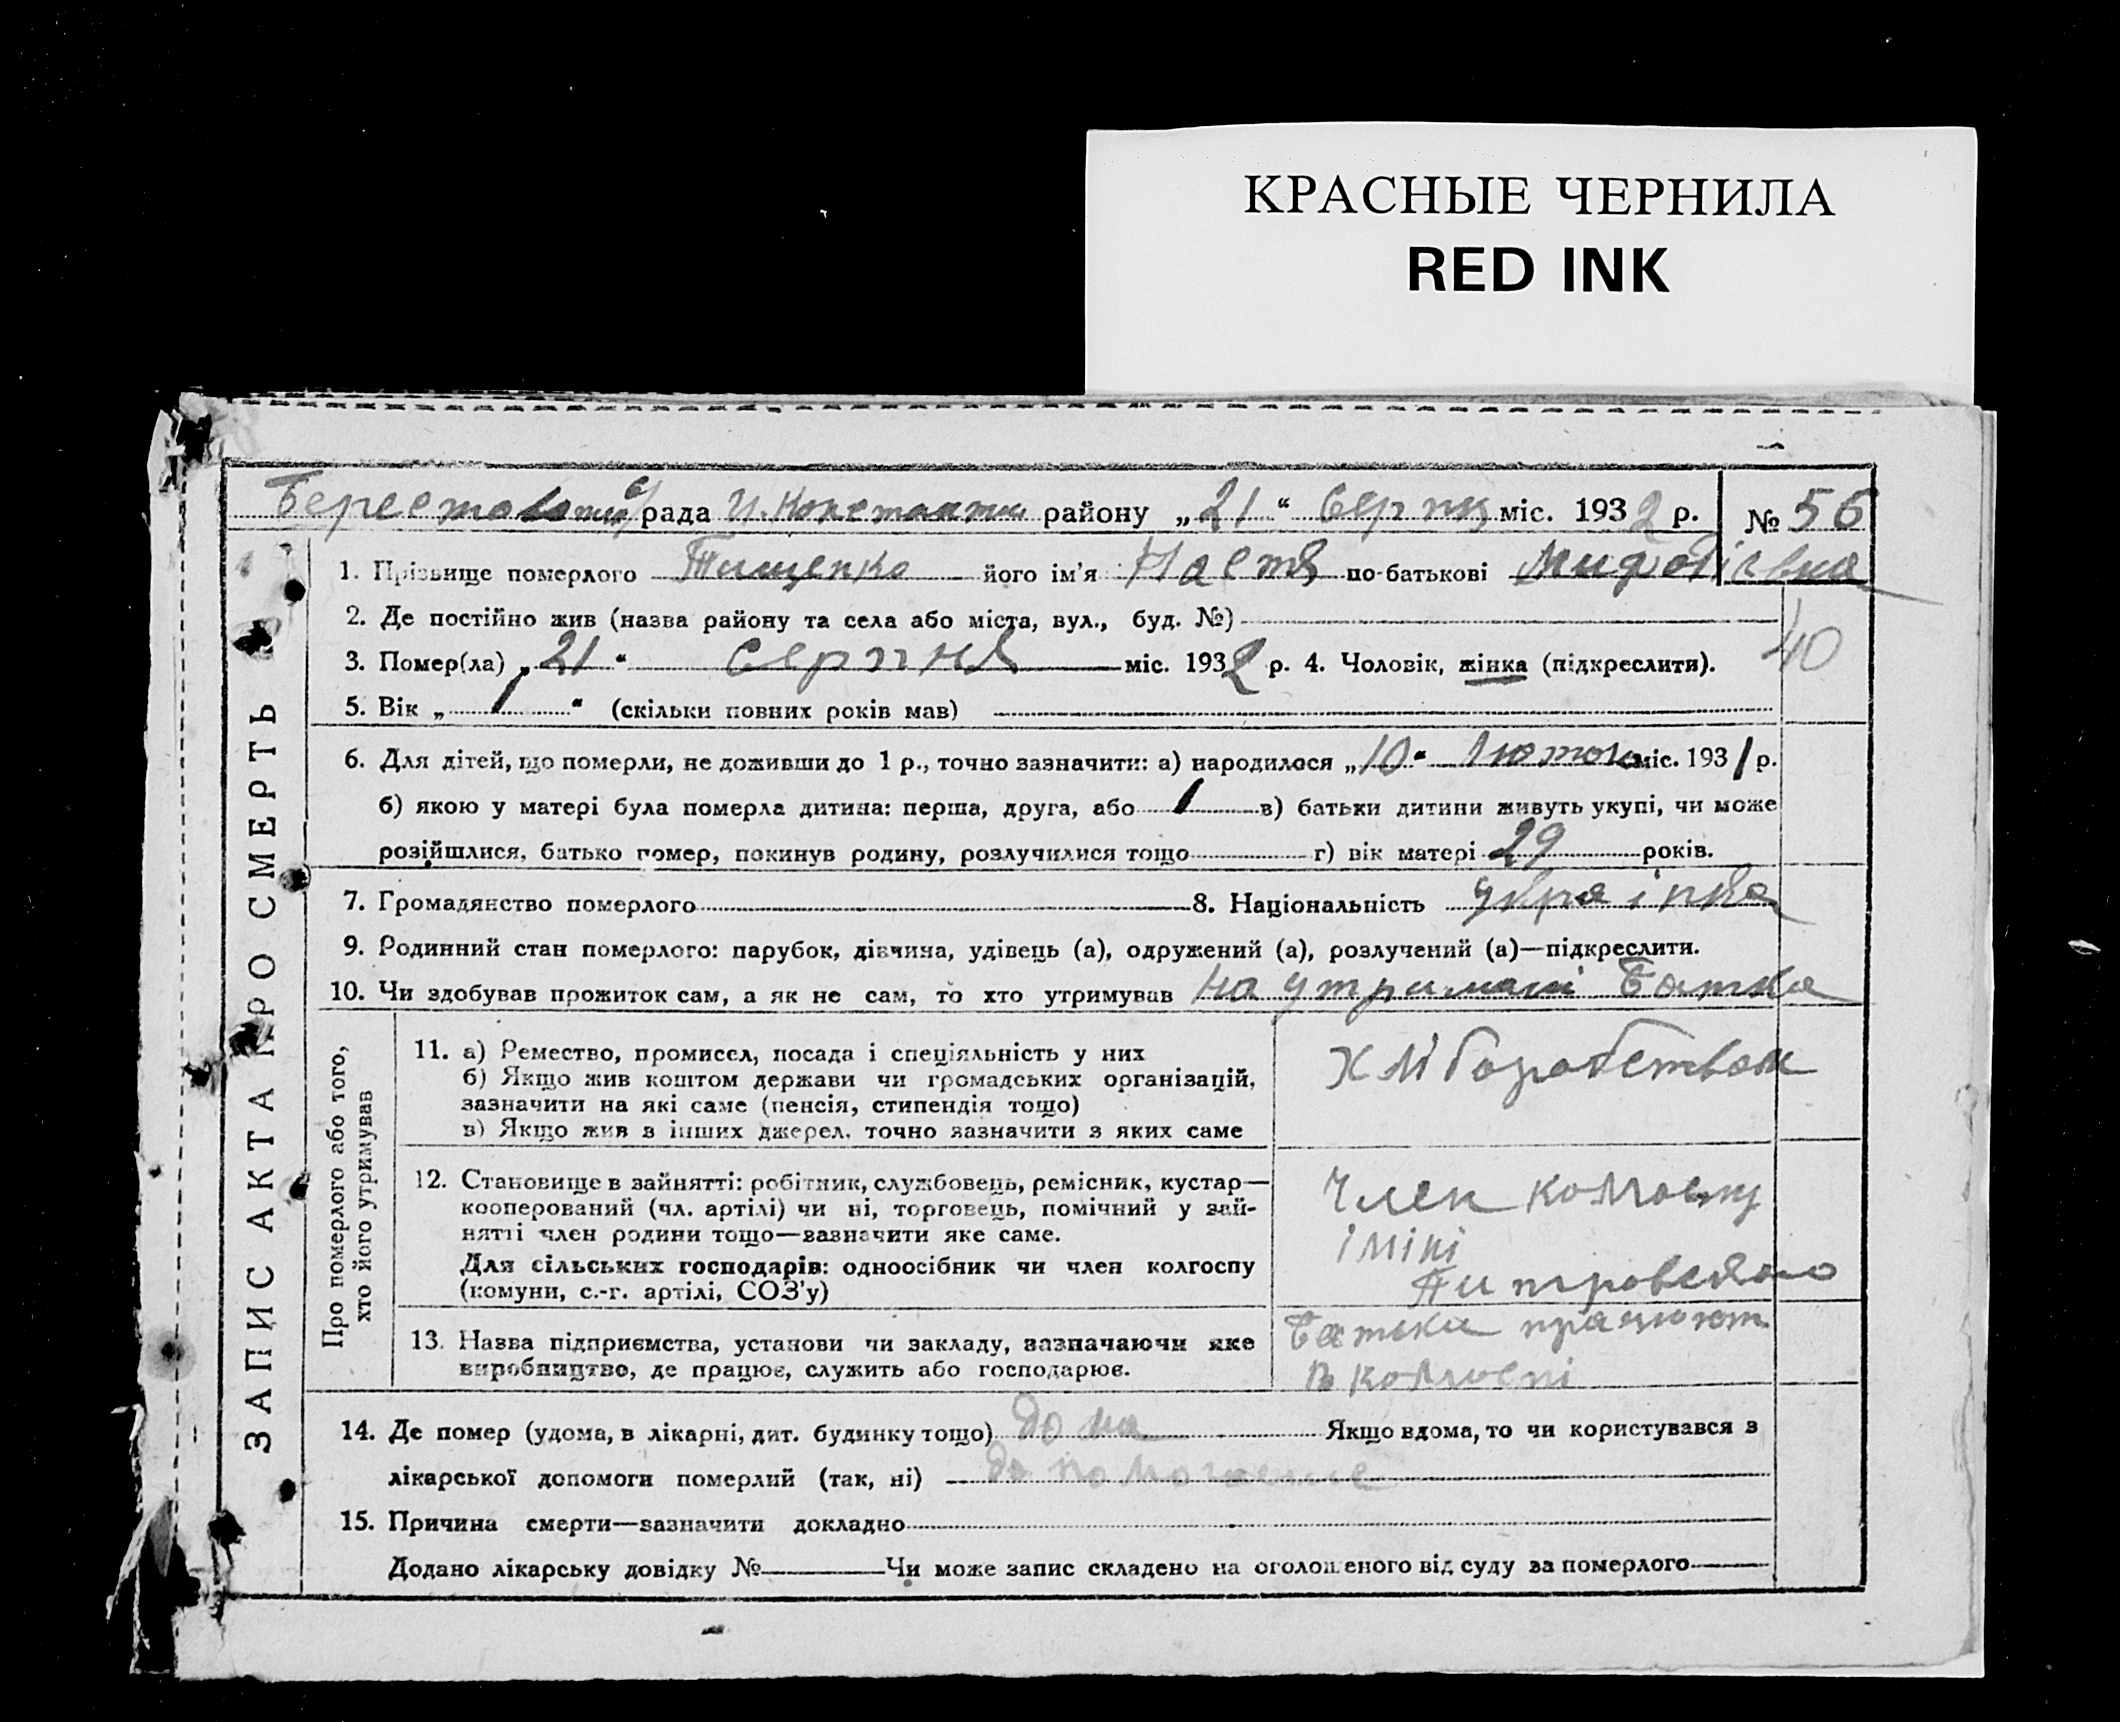 КРАСНЫЕ ЧЕРНИЛА
RED INK
с/рада Н. Константин району „21“ Серпня міс. 1932 р. № 56
1. Прізвище померлого Тищенко його ім'я Настя по-батькові
2. Де постійно жив (назва району та села або міста, вул., буд. №)
40
3. Помер(ла) „21“ серпня міс. 1932 р. 4. Чоловік, жінка (підкреслити).
5. Вік „1“ (скільки повних років мав)
6. Для дітей, що померли, не доживши до 1 р., точно зазначити: а) народилося „10“ лютого міс. 1931 р.
б) якою у матері була померла дитина: перша, друга, або 1 в) батьки дитини живуть укупі, чи може
розійшлися, батько помер, покинув родину, розлучилися тощо г) вік матері 29 років.
7. Громадянство померлого 8. Національність українка
9. Родинний стан померлого: парубок, дівчина, удівець (а), одружений (а), розлучений (а)—підкреслити.
10. Чи здобував прожиток сам, а як не сам, то хто утримував на утримані Батька
ЗАПИС АКТА ПРО СМЕРТЬ
Про померлого або того,
хто його утримував
11. а) Ремество, промисел, посада і спеціяльність у них
б) Якщо жив коштом держави чи громадських організацій,
зазначити на які саме (пенсія, стипендія тощо)
в) Якщо жив з інших джерел, точно зазначити з яких саме
Хліборобством
12. Становище в зайнятті: робітник, службовець, ремісник, кустар—
кооперований (чл. артілі) чи ні, торговець, помічний у зай-
нятті член родини тощо—зазначити яке саме.
Для сільських господарів: одноосібник чи член колгоспу
(комуни, с.-г. артілі, СОЗ'у)
Член колгоспу
іміні
13. Назва підприємства, установи чи закладу, зазначаючи яке
виробництво, де працює, служить або господарює.
Батьки працюют
в колгоспі
14. Де помер (удома, в лікарні, дит. будинку тощо) дома Якщо вдома, то чи користувався з
лікарської допомоги померлий (так, ні)
15. Причина смерти—зазначити докладно
Додано лікарську довідку № Чи може запис складено на оголошеного від суду за померлого